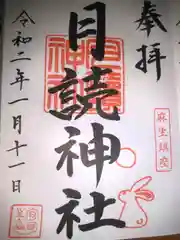 奉拝
麻生鎮座
月読神社
令和二年一月十一日